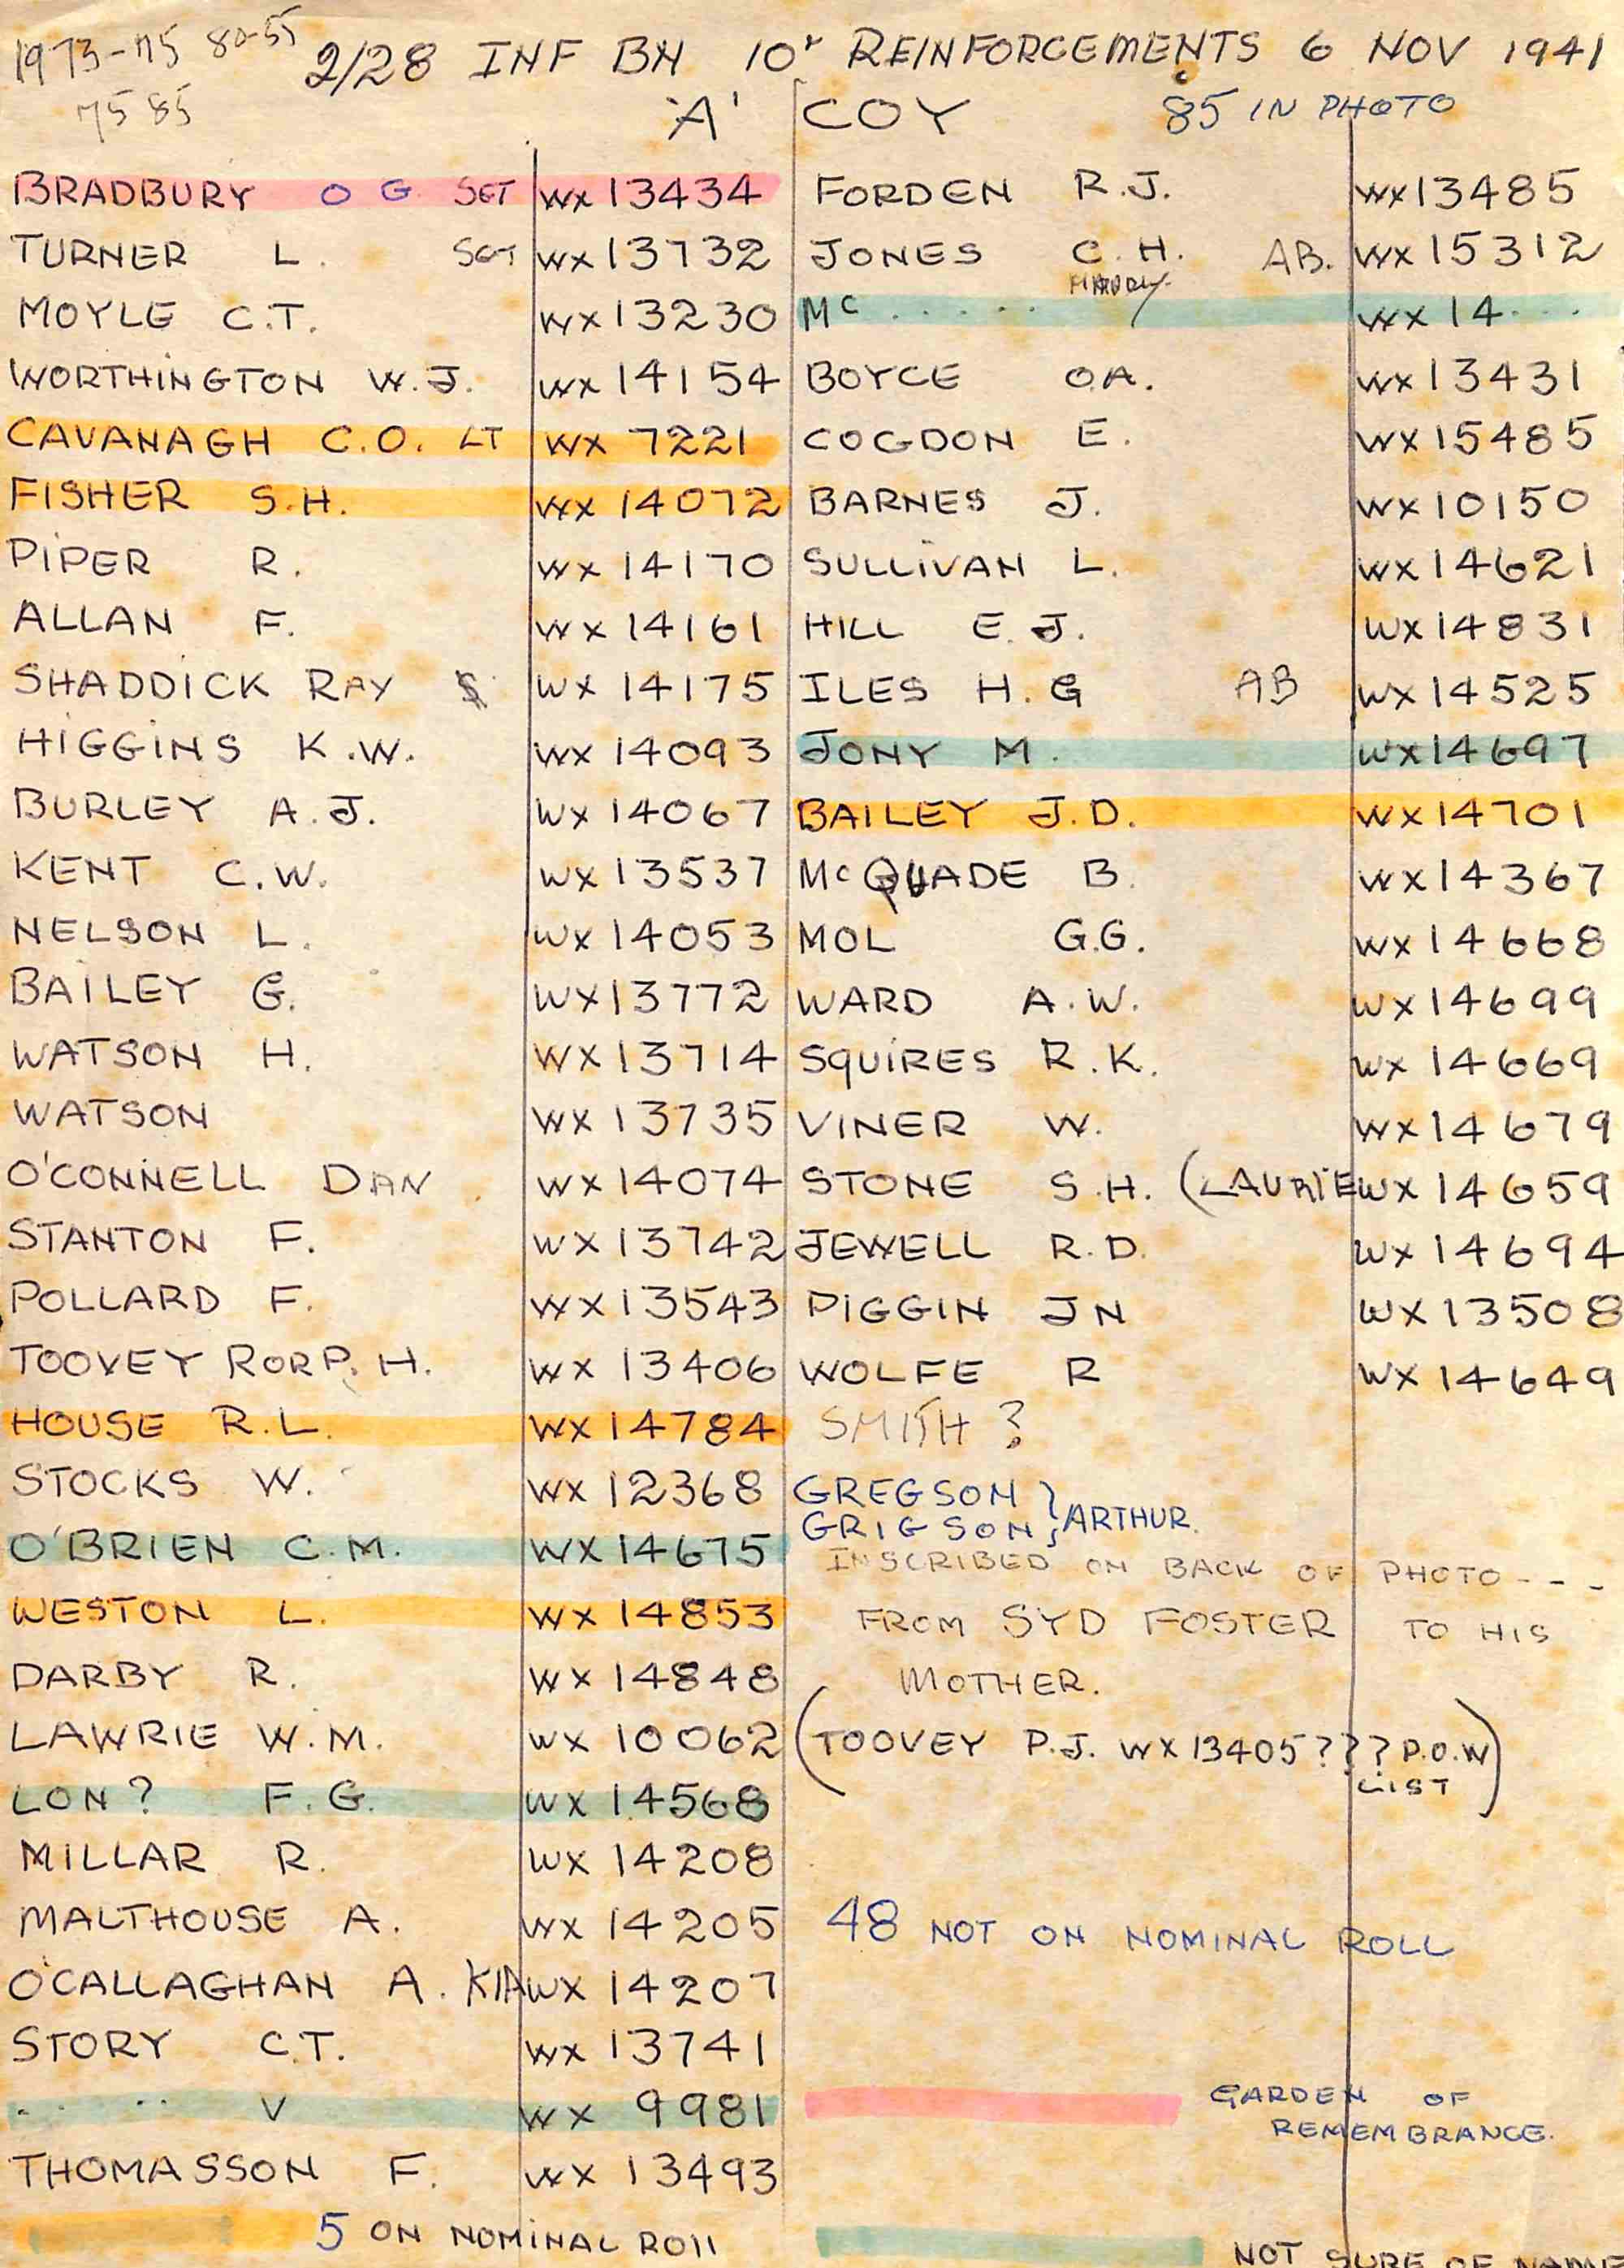 1973-75 80-55 2/28 INF BN 10' REINFORCEMENTS 6 NOV 1941
75 85 'A' COY 85 IN PHOTO
BRADBURY O G. SGT WX 13434 FORDEN R.J. WX13485
TURNER L. SGT WX 13732 JONES C.H. AB. WX 15312
MOYLE C.T. WX 13230 Mc . . . . . WX 14 . . .
WORTHINGTON W.J. WX 14154 BOYCE O.A. WX13431
CAVANAGH C.O. LT WX 7221 COGDON E. WX15485
FISHER S.H. WX 14072 BARNES J. WX10150
PIPER R. WX 14170 SULLIVAN L. WX14621
ALLAN F. WX 14161 HILL E.J. WX14831
SHADDICK RAY S WX 14175 ILES H.G AB WX 14525
HIGGINS K.W. WX 14093 JONY M. WX14697
BURLEY A.J. WX 14067 BAILEY J.D. WX14701
KENT C.W. WX 13537 McQUADE B. WX14367
NELSON L. WX 14053 MOL G.G. WX 14668
BAILEY G. WX13772 WARD A.W. WX14699
WATSON H. WX 13714 SQUIRES R.K. WX 14669
WATSON WX 13735 VINER W. WX14679
O'CONNELL DAN WX 14074 STONE S.H. (LAURIE WX 14659
STANTON F. WX 13742 JEWELL R.D. WX 14694
POLLARD F. WX13543 PIGGIN JN WX 13508
TOOVEY RORP. H. WX 13406 WOLFE R WX 14649
HOUSE R.L. WX 14784 SMITH ?
STOCKS W. WX 12368 GREGSON } ARTHUR.
GRIGSON
O'BRIEN C.M. WX 14675 INSCRIBED ON BACK OF PHOTO - - -
WESTON L. WX 14853 FROM SYD FOSTER TO HIS
DARBY R. WX 14848 MOTHER.
LAWRIE W.M. WX 10062 (TOOVEY P.J. WX 13405 ? ? ? P.O.W LIST)
LON? F.G. WX 14568
MILLAR R. WX 14208
MALTHOUSE A. WX 14205 48 NOT ON NOMINAL ROLL
O'CALLAGHAN A. KIA WX 14207
STORY C.T. WX 13741
. . . . V WX 9981 GARDEN OF
REMEMBRANCE.
THOMASSON F. WX 13493
5 ON NOMINAL ROLL NOT SURE OF NAME